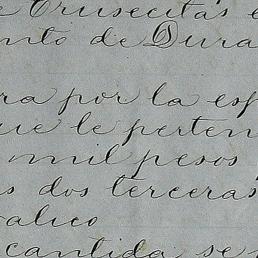 Crusecitas
nto de Dura
ra por la esp
que le perten
mil pesos
s dos terceras
alico
cantida se